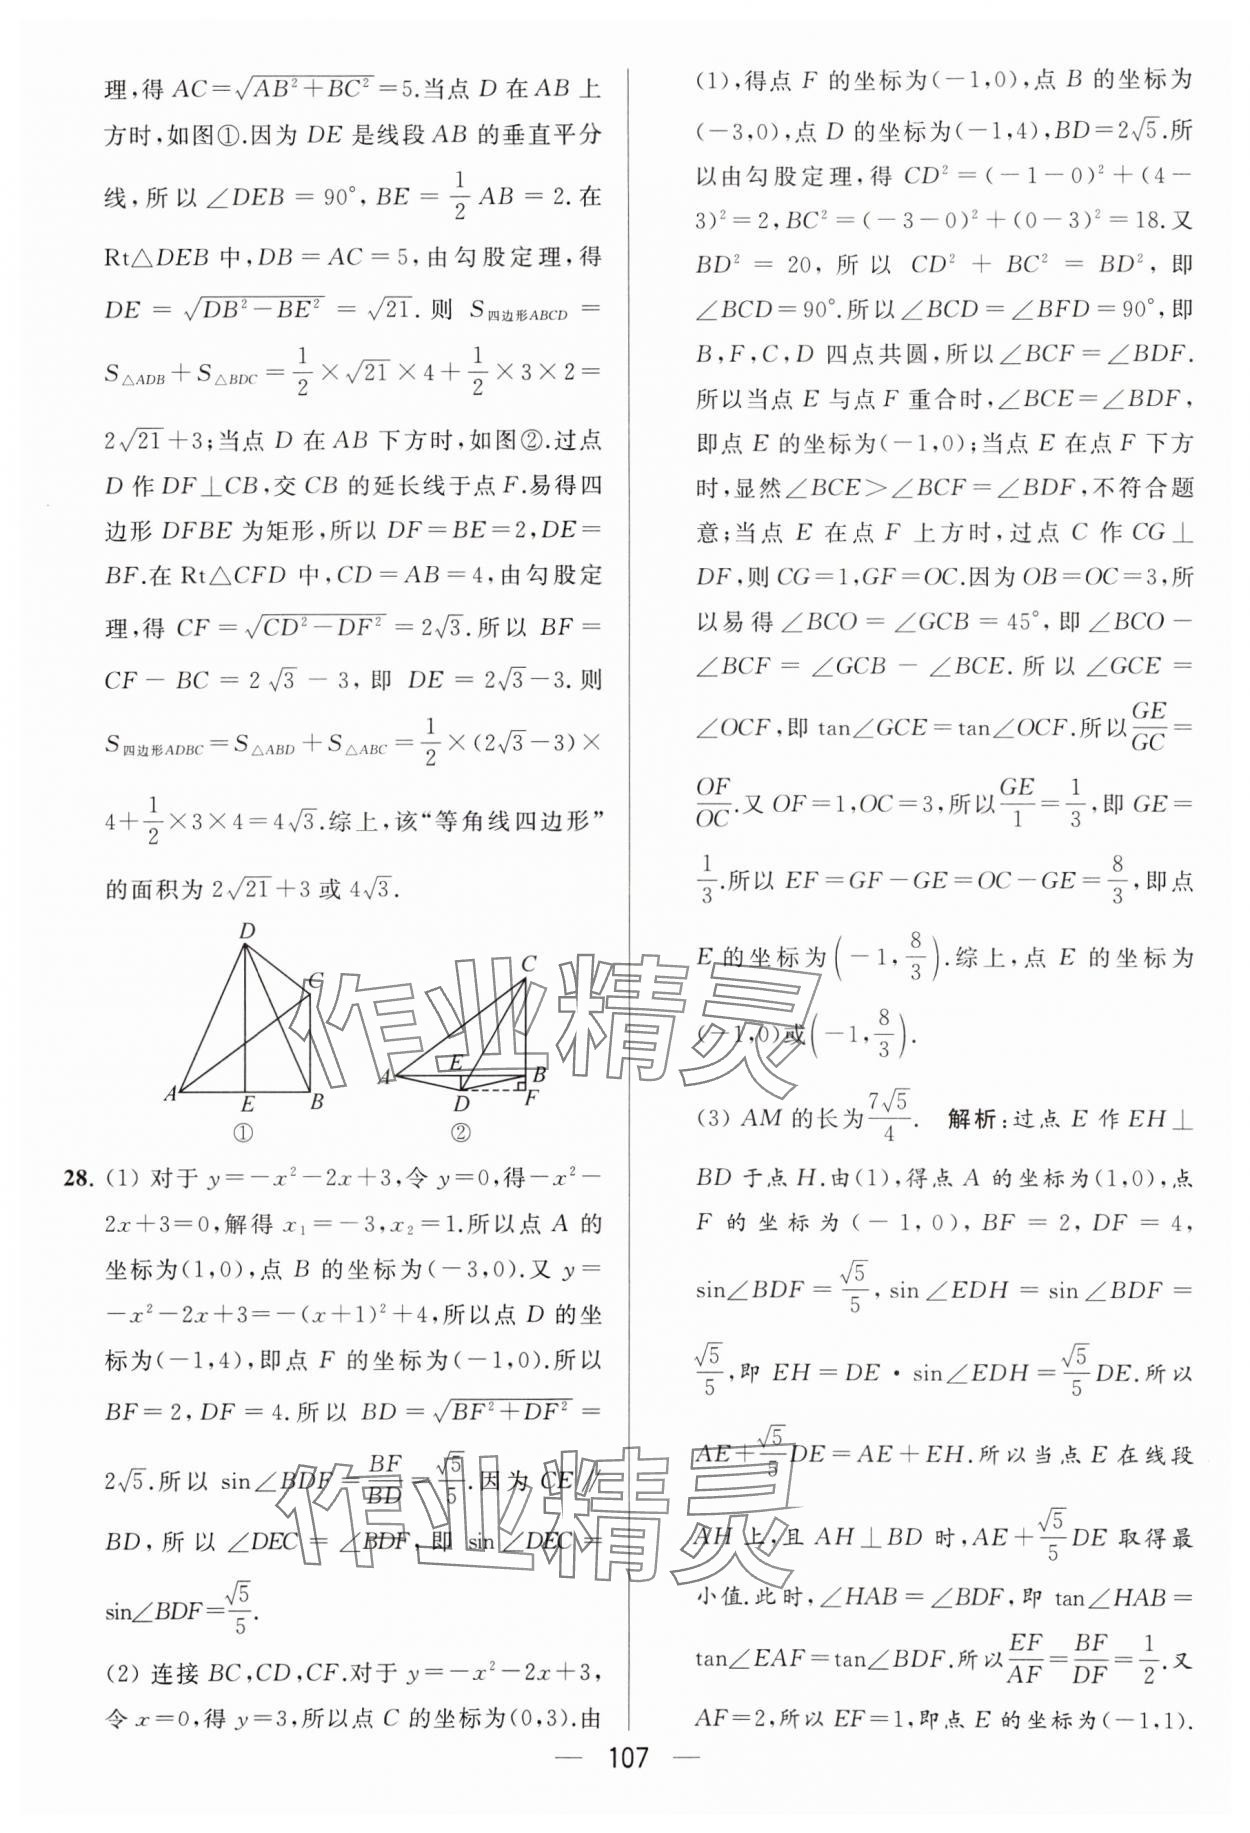 理,得 AC=√(AB²+BC²)=5.当点 D 在 AB 上
方时,如图①.因为 DE 是线段 AB 的垂直平分
线,所以 ∠DEB=90°,BE=1/2 AB=2.在
Rt△DEB 中,DB=AC=5,由勾股定理,得
DE=√(DB²-BE²)=√21.则 S四边形ABCD=
S△ADB+S△BDC=1/2×√21×4+1/2×3×2=
2√21+3;当点 D 在 AB 下方时,如图②.过点
D 作 DF⊥CB,交 CB 的延长线于点 F.易得四
边形 DFBE 为矩形,所以 DF=BE=2,DE=
BF.在 Rt△CFD 中,CD=AB=4,由勾股定
理,得 CF=√(CD²-DF²)=2√3.所以 BF=
CF-BC=2√3-3,即 DE=2√3-3.则
S四边形ADBC=S△ABD+S△ABC=1/2×(2√3-3)×
4+1/2×3×4=4√3.综上,该“等角线四边形”
的面积为 2√21+3 或 4√3.
D
C
A
E
B
①
C
E
A
B
D
F
②
28. (1) 对于 y=-x²-2x+3,令 y=0,得-x²-
2x+3=0,解得 x₁=-3,x₂=1.所以点 A 的
坐标为(1,0),点 B 的坐标为(-3,0).又 y=
-x²-2x+3=-(x+1)²+4,所以点 D 的坐
标为(-1,4),即点 F 的坐标为(-1,0).所以
BF=2,DF=4.所以 BD=√(BF²+DF²)=
2√5.所以 sin∠BDF=BF/BD=√5/5.因为 CE∥
BD,所以 ∠DEC=∠BDF,即 sin∠DEC=
sin∠BDF=√5/5.
(2) 连接 BC,CD,CF.对于 y=-x²-2x+3,
令 x=0,得 y=3,所以点 C 的坐标为(0,3).由
(1),得点 F 的坐标为(-1,0),点 B 的坐标为
(-3,0),点 D 的坐标为(-1,4),BD=2√5.所
以由勾股定理,得 CD²=(-1-0)²+(4-
3)²=2,BC²=(-3-0)²+(0-3)²=18.又
BD²=20,所以 CD²+BC²=BD²,即
∠BCD=90°.所以∠BCD=∠BFD=90°,即
B,F,C,D 四点共圆,所以∠BCF=∠BDF.
所以当点 E 与点 F 重合时,∠BCE=∠BDF,
即点 E 的坐标为(-1,0);当点 E 在点 F 下方
时,显然∠BCE>∠BCF=∠BDF,不符合题
意;当点 E 在点 F 上方时,过点 C 作 CG⊥
DF,则 CG=1,GF=OC.因为 OB=OC=3,所
以易得∠BCO=∠GCB=45°,即∠BCO-
∠BCF=∠GCB-∠BCE.所以∠GCE=
∠OCF,即 tan∠GCE=tan∠OCF.所以GE/GC=
OF/OC.又 OF=1,OC=3,所以GE/1=1/3,即 GE=
1/3.所以 EF=GF-GE=OC-GE=8/3,即点
E 的坐标为(-1,8/3).综上,点 E 的坐标为
(-1,0)或(-1,8/3).
(3) AM 的长为7√5/4. 解析:过点 E 作 EH⊥
BD 于点 H.由(1),得点 A 的坐标为(1,0),点
F 的坐标为(-1,0),BF=2,DF=4,
sin∠BDF=√5/5,sin∠EDH=sin∠BDF=
√5/5,即 EH=DE·sin∠EDH=√5/5DE.所以
AE+√5/5DE=AE+EH.所以当点 E 在线段
AH 上,且 AH⊥BD 时,AE+√5/5DE 取得最
小值.此时,∠HAB=∠BDF,即 tan∠HAB=
tan∠EAF=tan∠BDF.所以EF/AF=BF/DF=1/2.又
AF=2,所以 EF=1,即点 E 的坐标为(-1,1).
— 107 —
作业精灵
作业精灵